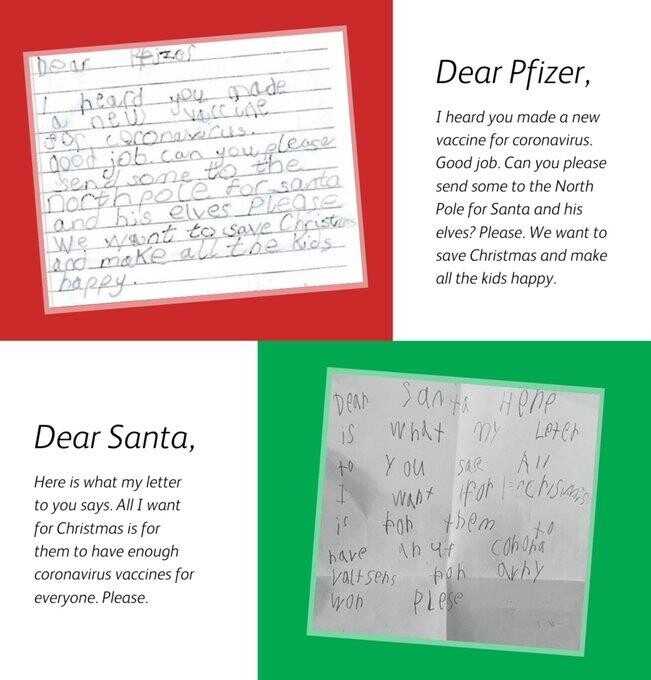 Dear Pfizer
I heard you made
a new vaccine
for coronavirus.
good job. can you please
send some to the
north pole for santa
and his elves please
we want to save Christmas
and make all the kids
happy.
Dear Pfizer,
I heard you made a new
vaccine for coronavirus.
Good job. Can you please
send some to the North
Pole for Santa and his
elves? Please. We want to
save Christmas and make
all the kids happy.
Dear Santa,
Here is what my letter
to you says. All I want
for Christmas is for
them to have enough
coronavirus vaccines for
everyone. Please.
Dear Santa Here
is what my Leter
to you sase All
I want for
is for them to
have
won Plese